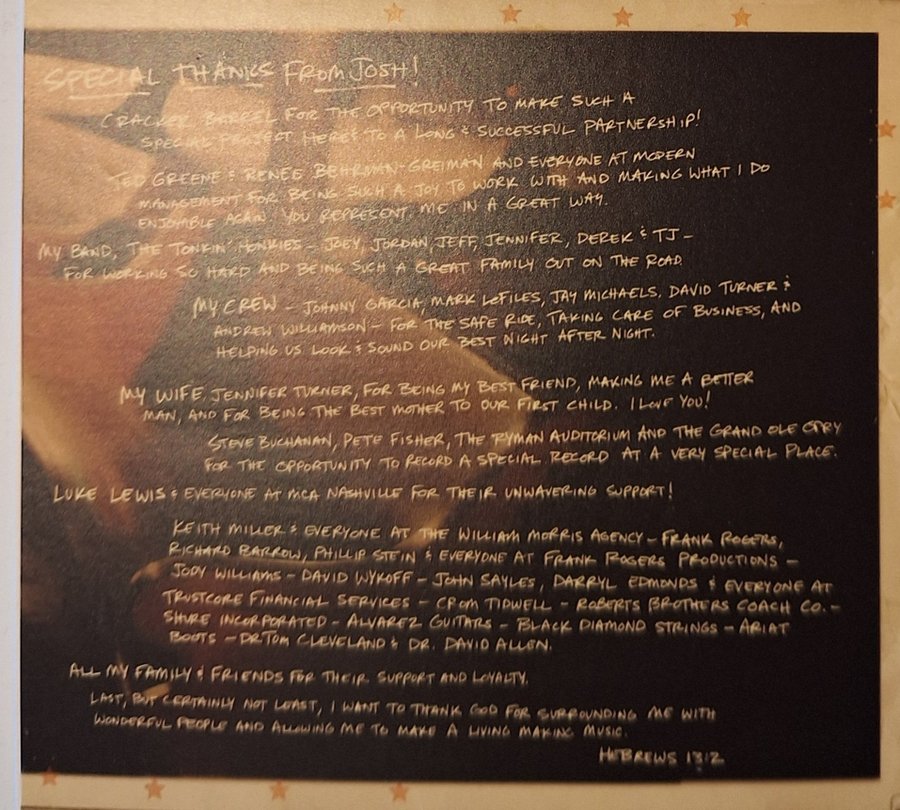 SPECIAL THANKS FROM JOSH!
CRACKER BARREL FOR THE OPPORTUNITY TO MAKE SUCH A
SPECIAL PROJECT HERE'S TO A LONG & SUCCESSFUL PARTNERSHIP!
TED GREENE & RENEE BEHRMAN-GREIMAN AND EVERYONE AT MODERN
MANAGEMENT FOR BEING SUCH A JOY TO WORK WITH AND MAKING WHAT I DO
ENJOYABLE AGAIN. YOU REPRESENT ME IN A GREAT WAY.
MY BAND, THE TONKIN' HONKIES - JOEY, JORDAN, JEFF, JENNIFER, DEREK & TJ -
FOR WORKING SO HARD AND BEING SUCH A GREAT FAMILY OUT ON THE ROAD.
MY CREW - JOHNNY GARCIA, MARK LEFILES, JAY MICHAELS, DAVID TURNER &
ANDREW WILLIAMSON - FOR THE SAFE RIDE, TAKING CARE OF BUSINESS, AND
HELPING US LOOK & SOUND OUR BEST NIGHT AFTER NIGHT.
MY WIFE, JENNIFER TURNER, FOR BEING MY BEST FRIEND, MAKING ME A BETTER
MAN, AND FOR BEING THE BEST MOTHER TO OUR FIRST CHILD. I LOVE YOU!
STEVE BUCHANAN, PETE FISHER, THE RYMAN AUDITORIUM AND THE GRAND OLE OPRY
FOR THE OPPORTUNITY TO RECORD A SPECIAL RECORD AT A VERY SPECIAL PLACE.
LUKE LEWIS & EVERYONE AT MCA NASHVILLE FOR THEIR UNWAVERING SUPPORT!
KEITH MILLER & EVERYONE AT THE WILLIAM MORRIS AGENCY - FRANK ROGERS,
RICHARD BARROW, PHILLIP STEIN & EVERYONE AT FRANK ROGERS PRODUCTIONS -
JODY WILLIAMS - DAVID WYKOFF - JOHN SAYLES, DARRYL EDMONDS & EVERYONE AT
TRUSTCORE FINANCIAL SERVICES - CROM TIDWELL - ROBERTS BROTHERS COACH CO. -
SHURE INCORPORATED - ALVAREZ GUITARS - BLACK DIAMOND STRINGS - ARIAT
BOOTS - DR. TOM CLEVELAND & DR. DAVID ALLEN.
ALL MY FAMILY & FRIENDS FOR THEIR SUPPORT AND LOYALTY.
LAST, BUT CERTAINLY NOT LEAST, I WANT TO THANK GOD FOR SURROUNDING ME WITH
WONDERFUL PEOPLE AND ALLOWING ME TO MAKE A LIVING MAKING MUSIC.
HEBREWS 13:2